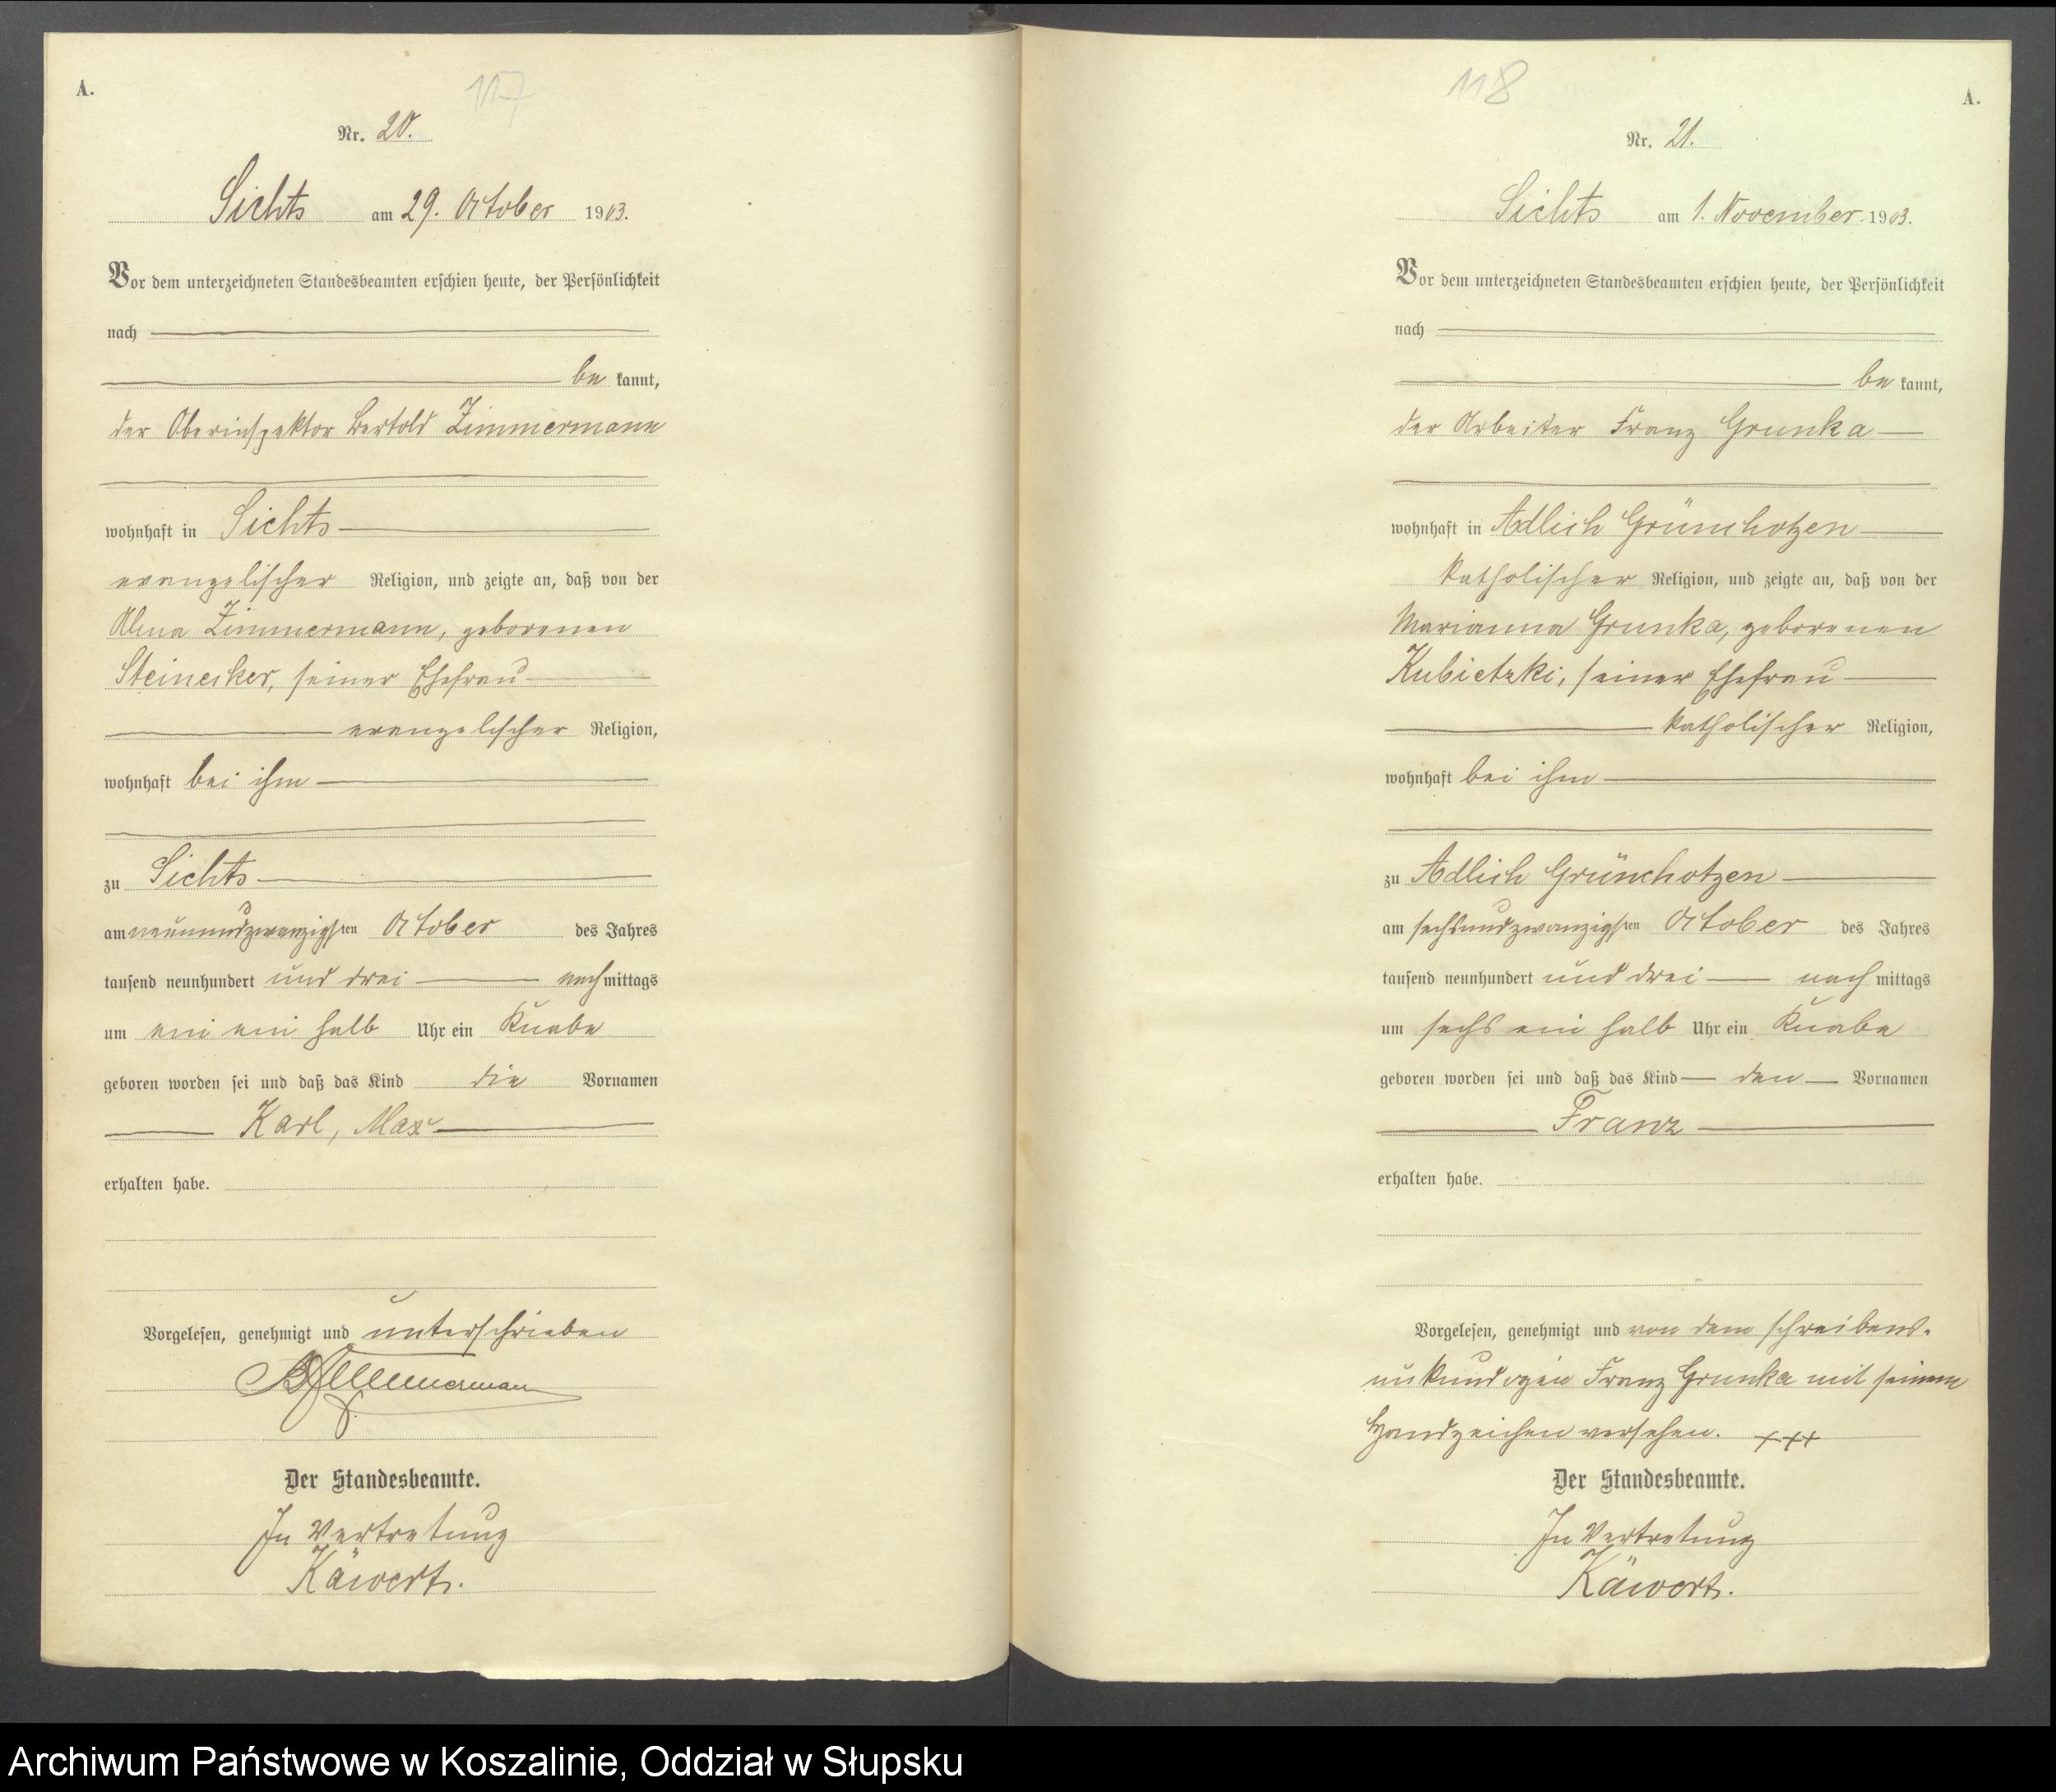 A.
117
Nr. 20.
Sichts am 29. October 1903.
Vor dem unterzeichneten Standesbeamten erschien heute, der Persönlichkeit
nach
be kannt,
der Oberinspektor Bertold Zimmermann
wohnhaft in Sichts
evangelischer Religion, und zeigte an, daß von der
Alma Zimmermann, geborenen
Steinecker, seiner Ehefrau
evangelischer Religion,
wohnhaft bei ihm
zu Sichts
am neunundzwanzigsten October des Jahres
tausend neunhundert und drei nachmittags
um ein ein halb Uhr ein Knabe
geboren worden sei und daß das Kind die Vornamen
Karl, Max
erhalten habe.
Vorgelesen, genehmigt und unterschrieben
B Zimmermann
Der Standesbeamte.
In Vertretung
Käwert.
118
A.
Nr. 21.
Sichts am 1. November 1903.
Vor dem unterzeichneten Standesbeamten erschien heute, der Persönlichkeit
nach
be kannt,
der Arbeiter Franz Grunka
wohnhaft in Adlich Grünchotzen
katholischer Religion, und zeigte an, daß von der
Marianna Grunka, geborenen
Kubietzki, seiner Ehefrau
katholischer Religion,
wohnhaft bei ihm
zu Adlich Grünchotzen
am sechsundzwanzigsten October des Jahres
tausend neunhundert und drei nach mittags
um sechs ein halb Uhr ein Knabe
geboren worden sei und daß das Kind den Vornamen
Franz
erhalten habe.
Vorgelesen, genehmigt und von dem schreibens-
unkundigen Franz Grunka mit seinem
Handzeichen versehen. +++
Der Standesbeamte.
In Vertretung
Käwert.
Archiwum Państwowe w Koszalinie, Oddział w Słupsku